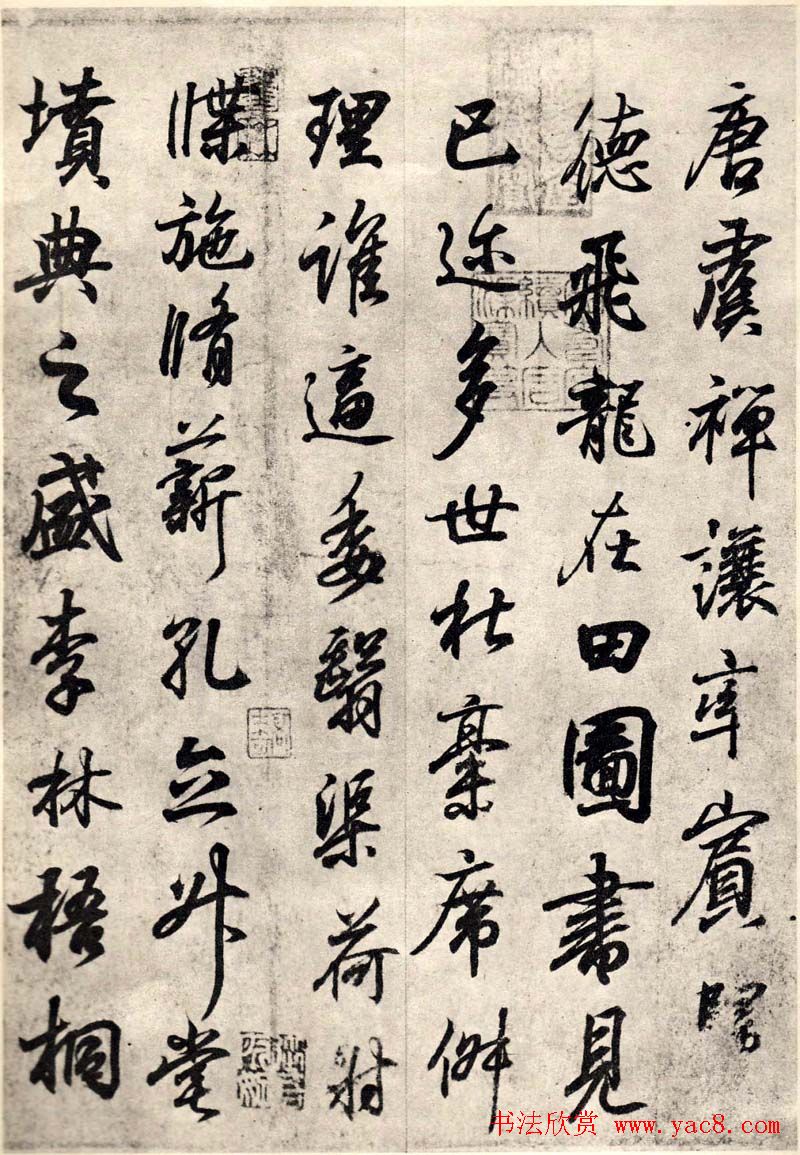 唐虞禪讓率賓
德飛龍在田圖書見
已迩多世杜稾席
理誰逼委翳渠荷
牒施脩薪孔立升堂
墳典之盛李林梧桐
书法欣赏 www.yac8.com